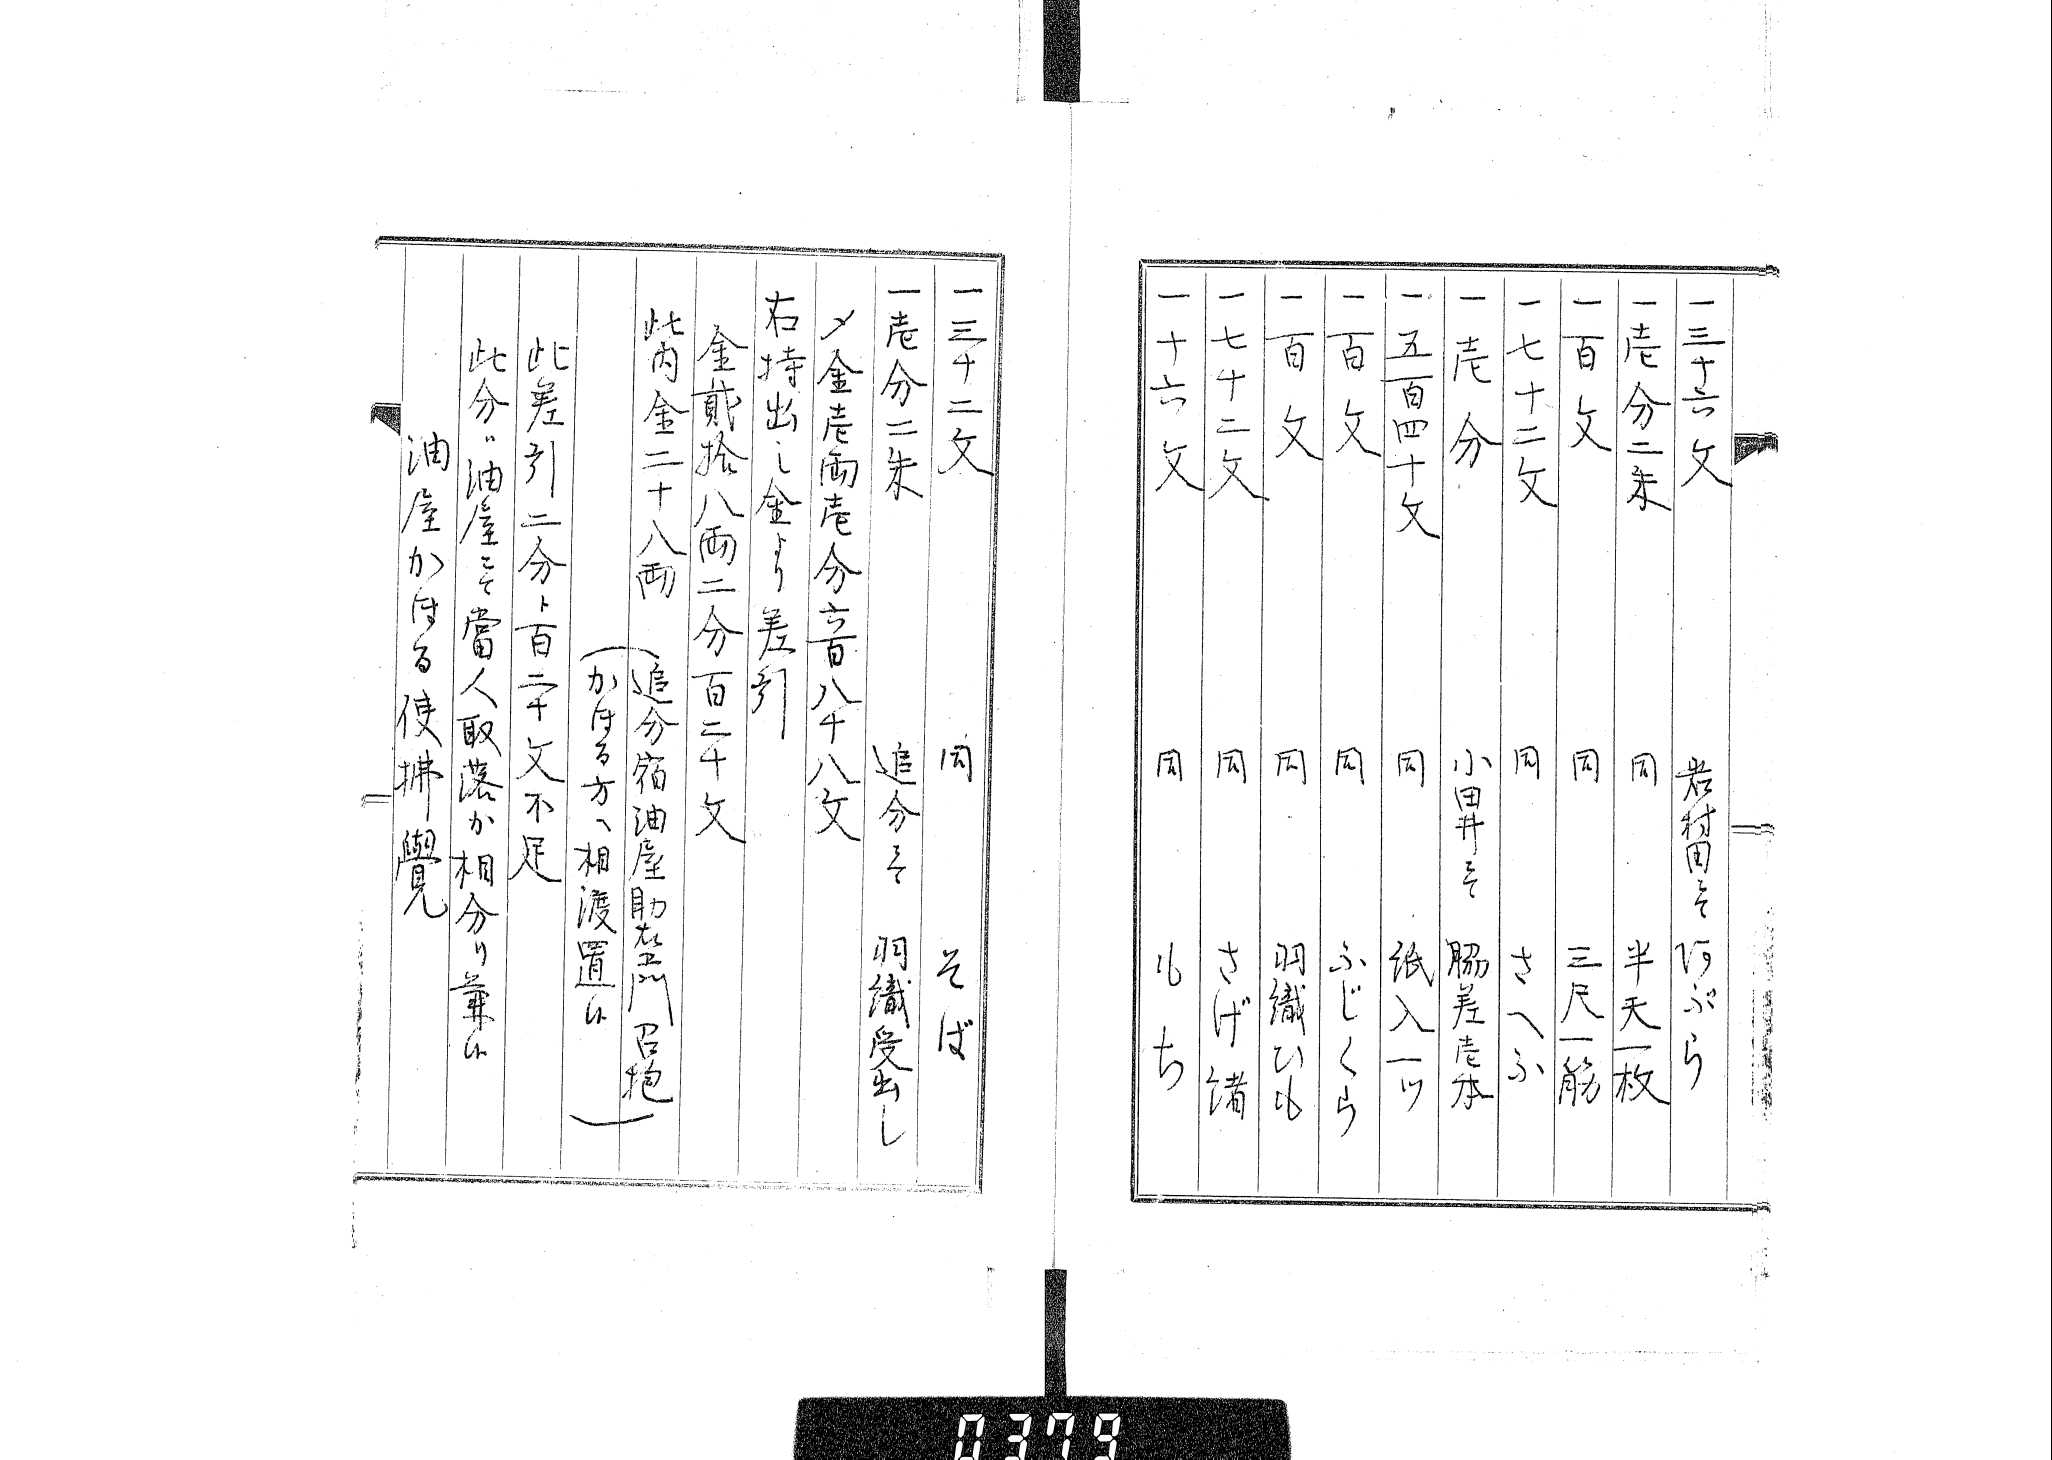 一三十六文 岩村田ニ而 阿ぶら
一壱分二朱 同 半天一枚
一百文 同 三尺一筋
一七十二文 同 さへふ
一壱分 小田井ニ而 脇差壱本
一五百四十文 同 紙入一ツ
一百文 同 ふじくら
一百文 同 羽織ひも
一七十二文 同 さげ緒
一十六文 同 もち
一三十二文 同 そば
一壱分二朱 追分ニ而 羽織受出し
〆金壱両壱分六百八十八文
右持出し金より差引
金貮拾八両二分百二十文
此内金二十八両 (追分宿油屋助右エ門召抱
かほる方へ相渡置候)
此差引二分ト百二十文不足
此分ハ油屋ニ而當人取落か相分り兼候
油屋かほる使拂覺
0379